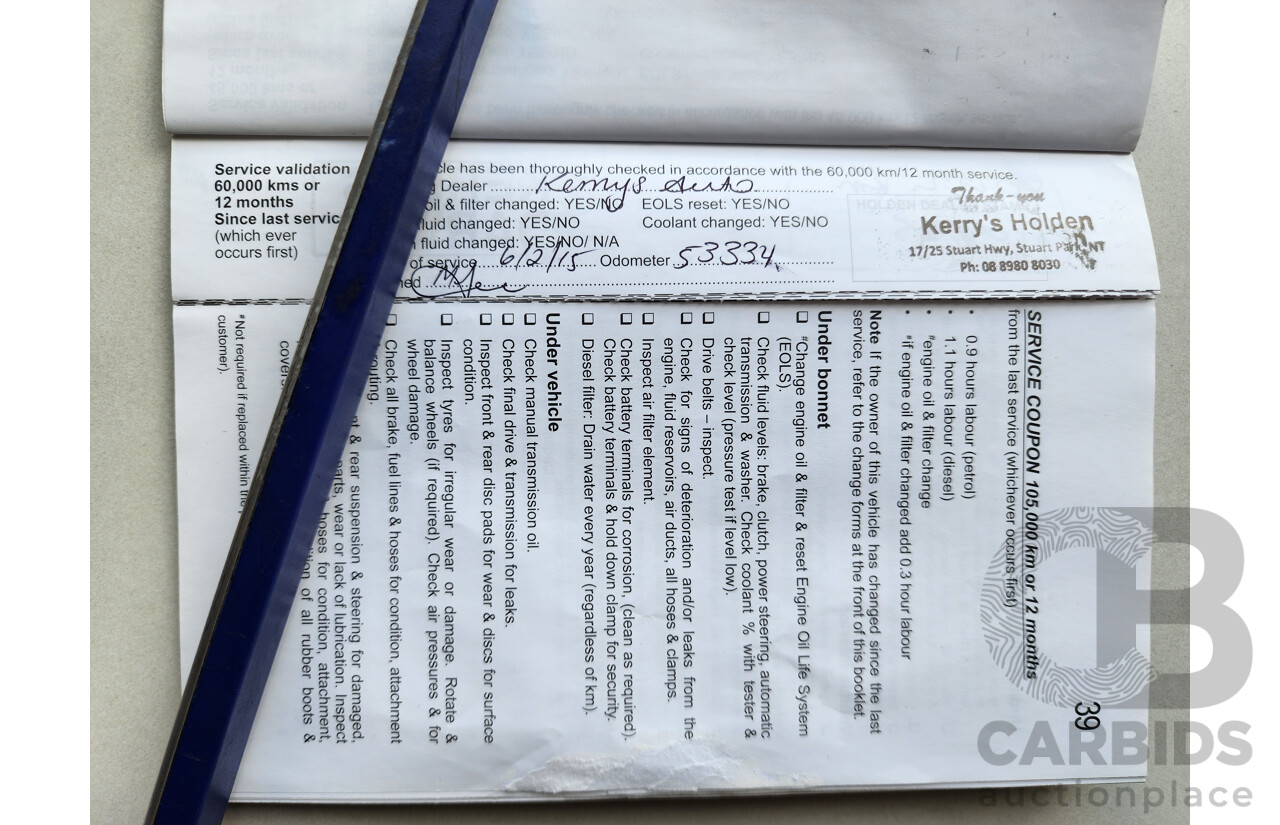 Service validation
60,000 kms or
12 months
Since last servic
(which ever
occurs first)
cle has been thoroughly checked in accordance with the 60,000 km/12 month service.
Dealer Kerrys Auto
oil & filter changed: YES/NO EOLS reset: YES/NO
luid changed: YES/NO Coolant changed: YES/NO
fluid changed: YES/NO/ N/A
of service 6/2/15 Odometer 53334
ned
Thank-you
Kerry's Holden
17/25 Stuart Hwy, Stuart Park NT
Ph: 08 8980 8030
39
SERVICE COUPON 105,000 km or 12 months
from the last service (whichever occurs first)
• 0.9 hours labour (petrol)
• 1.1 hours labour (diesel)
• #engine oil & filter change
• #if engine oil & filter changed add 0.3 hour labour
Note If the owner of this vehicle has changed since the last
service, refer to the change forms at the front of this booklet.
Under bonnet
❑ #Change engine oil & filter & reset Engine Oil Life System
(EOLS).
❑ Check fluid levels: brake, clutch, power steering, automatic
transmission & washer. Check coolant % with tester &
check level (pressure test if level low).
❑ Drive belts – inspect.
❑ Check for signs of deterioration and/or leaks from the
engine, fluid reservoirs, air ducts, all hoses & clamps.
❑ Inspect air filter element.
❑ Check battery terminals for corrosion, (clean as required).
Check battery terminals & hold down clamp for security.
❑ Diesel filter: Drain water every year (regardless of km).
Under vehicle
❑ Check manual transmission oil.
❑ Check final drive & transmission for leaks.
❑ Inspect front & rear disc pads for wear & discs for surface
condition.
❑ Inspect tyres for irregular wear or damage. Rotate &
balance wheels (if required). Check air pressures & for
wheel damage.
❑ Check all brake, fuel lines & hoses for condition, attachment
routing.
& rear suspension & steering for damaged,
parts, wear or lack of lubrication. Inspect
hoses for condition, attachment,
of all rubber boots &
covers
#Not required if replaced within the
customer).
CARBIDS
auctionplace